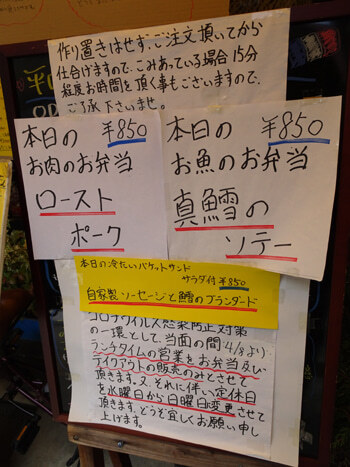 作り置きはせず、ご注文頂いてから
仕上げますので、こみあっている場合15分
程度お時間を頂く事もございますので、
ご了承下さいませ。
本日の ¥850
お肉のお弁当
ロースト
ポーク
本日の ¥850
お魚のお弁当
真鱈の
ソテー
本日の冷たいバケットサンド
サラダ付 ¥850
自家製ソーセージと鱈のブランダード
コロナウイルス感染防止対策
の一環として、当面の間4/8より
ランチタイムの営業をお弁当及び
テイクアウトの販売のみとさせて
頂きます。又、それに伴い定休日
を水曜日から日曜日に変更させて
頂きます。どうぞ宜しくお願い申し
上げます。